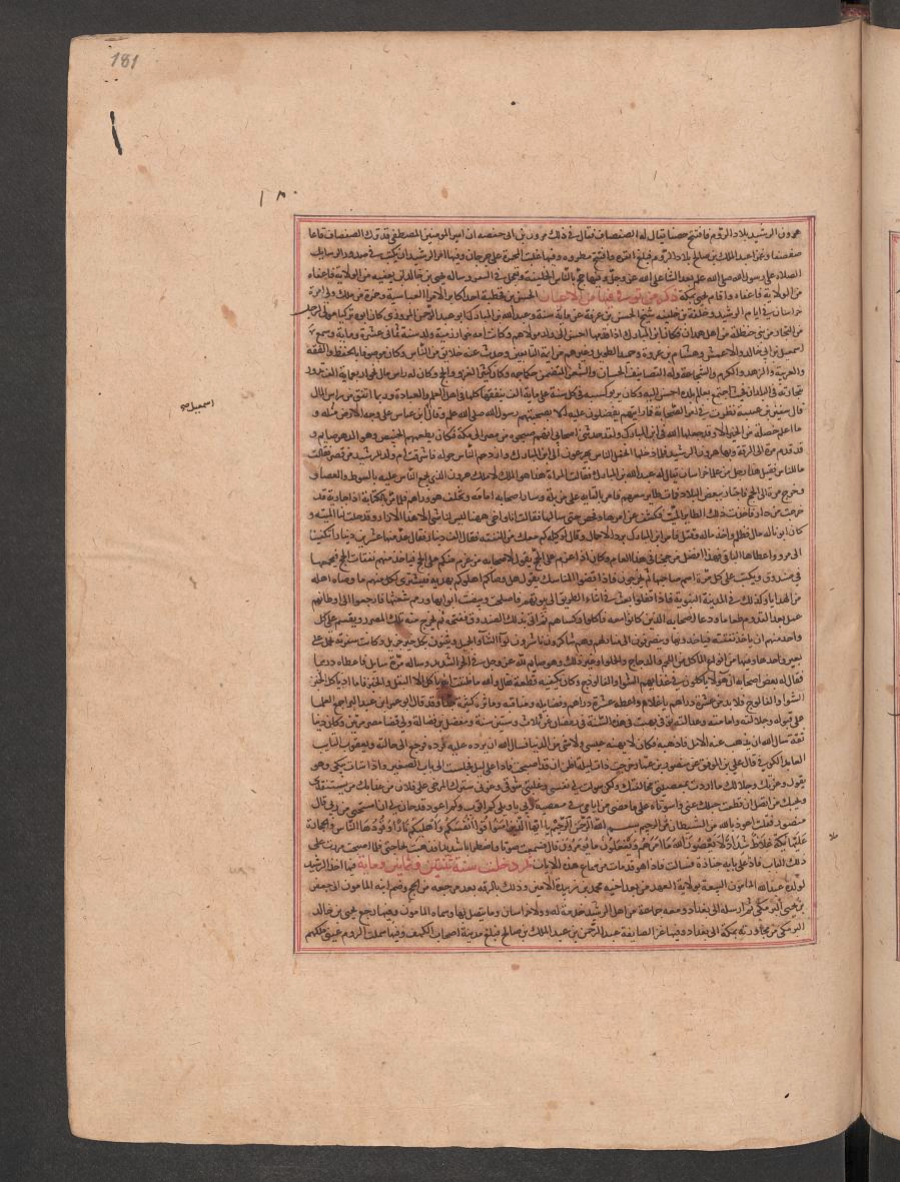 181
١٨٠
هرون الرشيد بلاد الروم فافتتح حصنا يقال له الصفصاف فقال في ذلك مرون بن ابي حفصه ان امير المومنين المصطفى قد ترك الصفصاف قاعا
صفصفا وغزا عبد الملك بن صالح بلاد الروم فبلغ انقره وافتتح مطموره وفيها غلبت المحمرة على جرجان وفيها امر الرشيد ان يكتب في صدور الرسايل
الصلاة على رسول الله صلى الله عليه بعد الثنا على الله عز وجل وفيها حج بالناس الخليفة وتعجل في النفر وساله يحيى بن خالد ان يعفيه من الولاية فاعفاه
من الولاية فاعفاه واقام يحيى بمكة ذكر من توفي فيها من الاعيان الحسن بن قحطبة احد اكابر الامرا العباسية وحمزة بن ملك ولي امرة
خراسان في ايام الرشيد وخلف بن خليفه شيخ الحسن بن عرفة عن ماية سنة وعبد الله بن المبارك ابو عبد الرحمن المروزي كان ابوه تركيا مولى لرجل
من التجار من بني حنظلة من اهل همدان فكان ابن المبارك اذا قدمها احسن الى ولد مولاهم وكانت امه خوارزمية ولد سنة ثماني عشرة وماية وسمع
اسمعيل بن ابي خالد والاعمش وهشام بن عروة وحميد الطويل وغيرهم من ايمة التابعين وحدث عنه خلايق من الناس وكان موصوفا بالحفظ والفقه
والعربية والزهد والكرم والشجاعة وله التصانيف الحسان والشعر المتضمن حكما جمه وكان كثير الغزو والحج وكان له راس مال نحو اربعماية الف يدور
اسمعيل صح
بتجارته في البلدان فحيث اجتمع بعالم بلده احسن اليه وكان يربو كسبه في كل سنة على ماية الف ينفقها كلها في اهل العلم والعبادة وربما انفق من راس المال
قال سفيان بن عيينة نظرت في امر الصحابة فما رايتهم يفضلون عليه الا بصحبتهم رسول الله صلى الله عليه وقال ابن عياش على وجه الارض مثله و
ما اعلم خصلة من الخير الا وقد جعلها الله في ابن المبارك ولقد حدثني اصحابي انهم صحبوه من مصر الى مكة فكان يطعمهم الخبيص وهو الدهر صايم و
قد قدم مرة الى الرقة وبها هرون الرشيد فلما دخلها انجفل الناس يهرعون الى ابن المبارك وازدحم الناس حوله فاشرفت ام ولد للرشيد من قصر فقالت
ما للناس فقيل هذا رجل من علما خراسان يقال له عبد الله بن المبارك فقالت المراة هذا هو الملك لا ملك هرون الذي يجمع الناس عليه بالسوط والعصا و
وخرج مرة الى الحج فاجتاز ببعض البلاد فمات طاير معهم فامر بالقايه على مزبلة وسار اصحابه امامه وتخلف هو وراهم فلما مر بالمزبلة اذا جارية قد
خرجت من دار فاخذت ذلك الطاير الميت فكشف عن امرها وفحص حتى سالها فقالت انا واخي ههنا ليس لنا شي الا هذا الازار وقد حلت لنا الميته و
كان ابونا له مال فظلم واخذ ماله وقتل فامر ابن المبارك برد الاحمال وقال لوكيله كم معك من النفقه فقال الف دينار فقال عد منها عشرين دينارا تكفينا
الى مرو واعطها الباقي فهذا افضل من حجنا في هذا العام وكان اذا عزم على الحج يقول لاصحابه من عزم منكم على الحج فياخذ منهم نفقات الحج فيجمعها
في صندوق ويكتب على كل صرة اسم صاحبها ثم يخرجون فاذا قضوا المناسك يقول هل وصاكم اهلوكم بهدية فيشتري لكل منهم ما وصاه اهله
من الهدايا وكذلك في المدينة النبوية فاذا قفلوا بعث في اثناء الطريق الى بيوتهم فاصلحت وبيضت ابوابها ورمم شعثها فاذا رجعوا الى اوطانهم
عمل بعد القدوم طعاما ودعا اصحابه الذين كانوا معه فاكلوا وكساهم ثم اتى بذلك الصندوق ففتحه ثم يخرج منه تلك الصرر ويقسم على كل
واحد منهم ان ياخذ نفقته فياخذوها وينصرفون الى منازلهم وهم شاكرون ناشرون لوا الثنا الجميل وكانت سفرته تحمل على
بعير وحدها وفيها من انواع الماكل من اللحم والدجاج والحلوا وغير ذلك وهو صايم لله عز وجل في الحر الشديد وساله مرة سايل فاعطاه درهما
فقال له بعض اصحابه ان هولا ياكلون في غدايهم الشوا والفالوذج وكان يكفيه قطعة فقال والله ما ظننت انه ياكل الا البقل والخبز فاما اذ ياكل
الشوا والفالوذج فلا بد من عشرة دراهم يا غلام واعطه عشرة دراهم وفضايله ومناقبه وماثره كثيرة جدا وقد قال ابو عمر بن عبد البر اجمع العلما
على قبوله وجلالته وامامته وعدالته توفي بهيت في هذه السنة في رمضان عن ثلاث وستين سنة ومفضل بن فضالة ولي قضا مصر مرتين وكان دينا
ثقة سال الله ان يذهب عنه الامل فاذهبه فكان لا يهنه عيش ولا شي من الدنيا فسال الله ان يرده عليه فرده فرجع الى حالته ويعقوب التايب
العابد الكوفي قال علي بن الموفق عن منصور بن عمار خرجت ذات ليلة اظن اني قد اصبحت فاذا علي ليل فجلست الى باب الصغير واذا شاب يبكي وهو
يقول وعزتك وجلالك ما اردت بمعصيتي مخالفتك ولكن سولت لي نفسي وغلبتني شقوتي وغرني سترك المرخى علي فالان من عذابك من يستنقذني
وبحبل من اتصل ان قطعت حبلك عني واسوءتاه على ما مضى من ايامي في معصية ربي يا ويلي كم اتوب وكم اعود قد حان لي ان استحيي من ربي قال
منصور فقلت اعوذ بالله من الشيطان الرجيم بسم الله الرحمن الرحيم يا ايها الذين امنوا قوا انفسكم واهليكم نارا وقودها الناس والحجارة
عليها ملايكة غلاظ شداد لا يعصون الله ما امرهم ويفعلون ما يومرون قال فسمعت صوتا واضطرابا شديدا فذهبت لحاجتي فلما اصبحت مررت على
ذلك الباب فاذا على بابه جنازة فسالت فاذا هو قد مات من سماع هذه الايات ثم دخلت سنة ثنتين وثمانين وماية فيها اخذ الرشيد
لولده عبد الله المامون البيعة بولاية العهد من بعد اخيه محمد بن زبيدة الامين وذلك بالرقه بعد مرجعه من الحج وضم ابنه المامون الى جعفر
بن يحيى البرمكي ثم ارسله الى بغداد ومعه جماعة من اهل الرشيد خدمة له وولاه خراسان وما يتصل بها وسماه المامون وفيها رجع يحيى بن خالد
البرمكي من مجاورته بمكة الى بغداد وفيها غزا الصايفة عبد الرحمن بن عبد الملك بن صالح فبلغ مدينة اصحاب الكهف وفيها سملت الروم عيني ملكهم